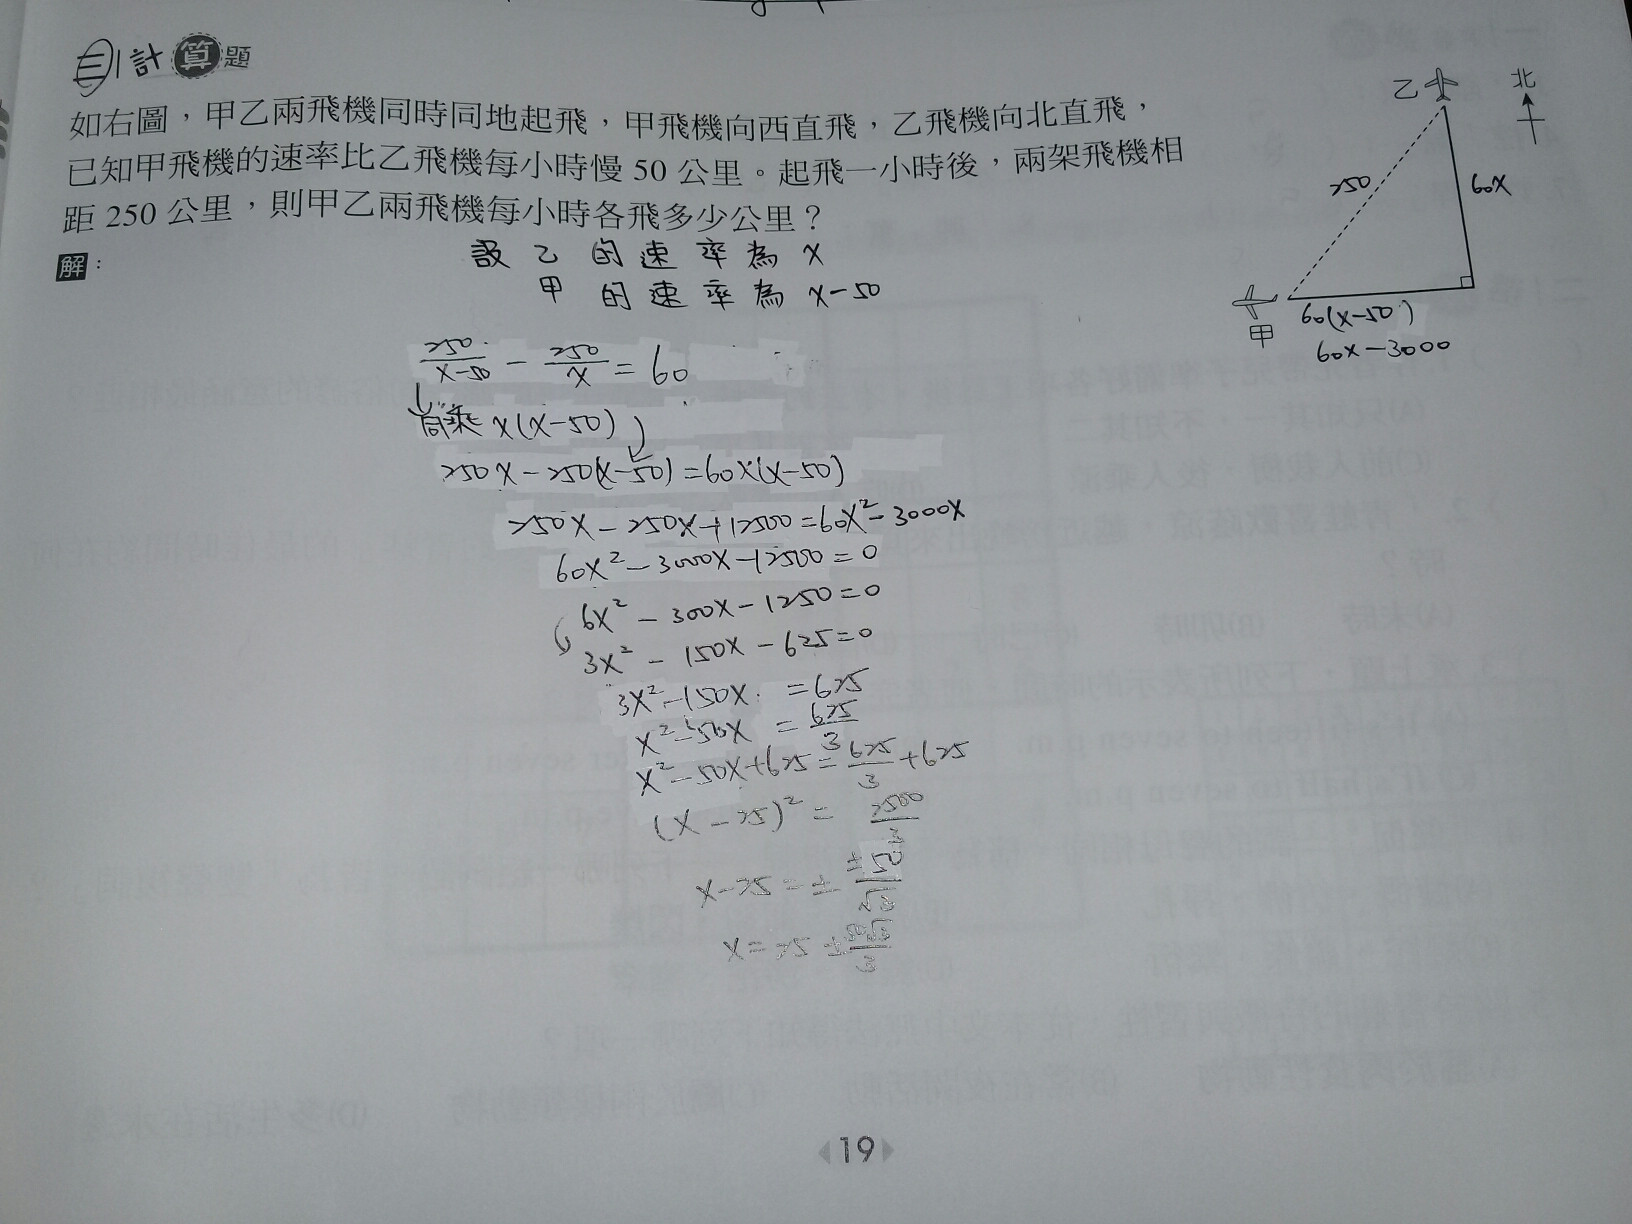 三 計算題
如右圖，甲乙兩飛機同時同地起飛，甲飛機向西直飛，乙飛機向北直飛，
已知甲飛機的速率比乙飛機每小時慢 50 公里。起飛一小時後，兩架飛機相
距 250 公里，則甲乙兩飛機每小時各飛多少公里？
解：
乙
北
250
60x
甲
60(x-50)
60x-3000
設乙的速率為 x
甲的速率為 x-50
250/(x-50) - 250/x = 60
同乘 x(x-50)
250x-250(x-50)=60x(x-50)
250x-250x+12500=60x²-3000x
60x²-3000x-12500=0
6x²-300x-1250=0
3x²-150x-625=0
3x²-150x =625
x²-50x = 625/3
x²-50x+625=625/3+625
(x-25)²= 2500/3
x-25=± ±50/√3
x=25±50√3/3
19